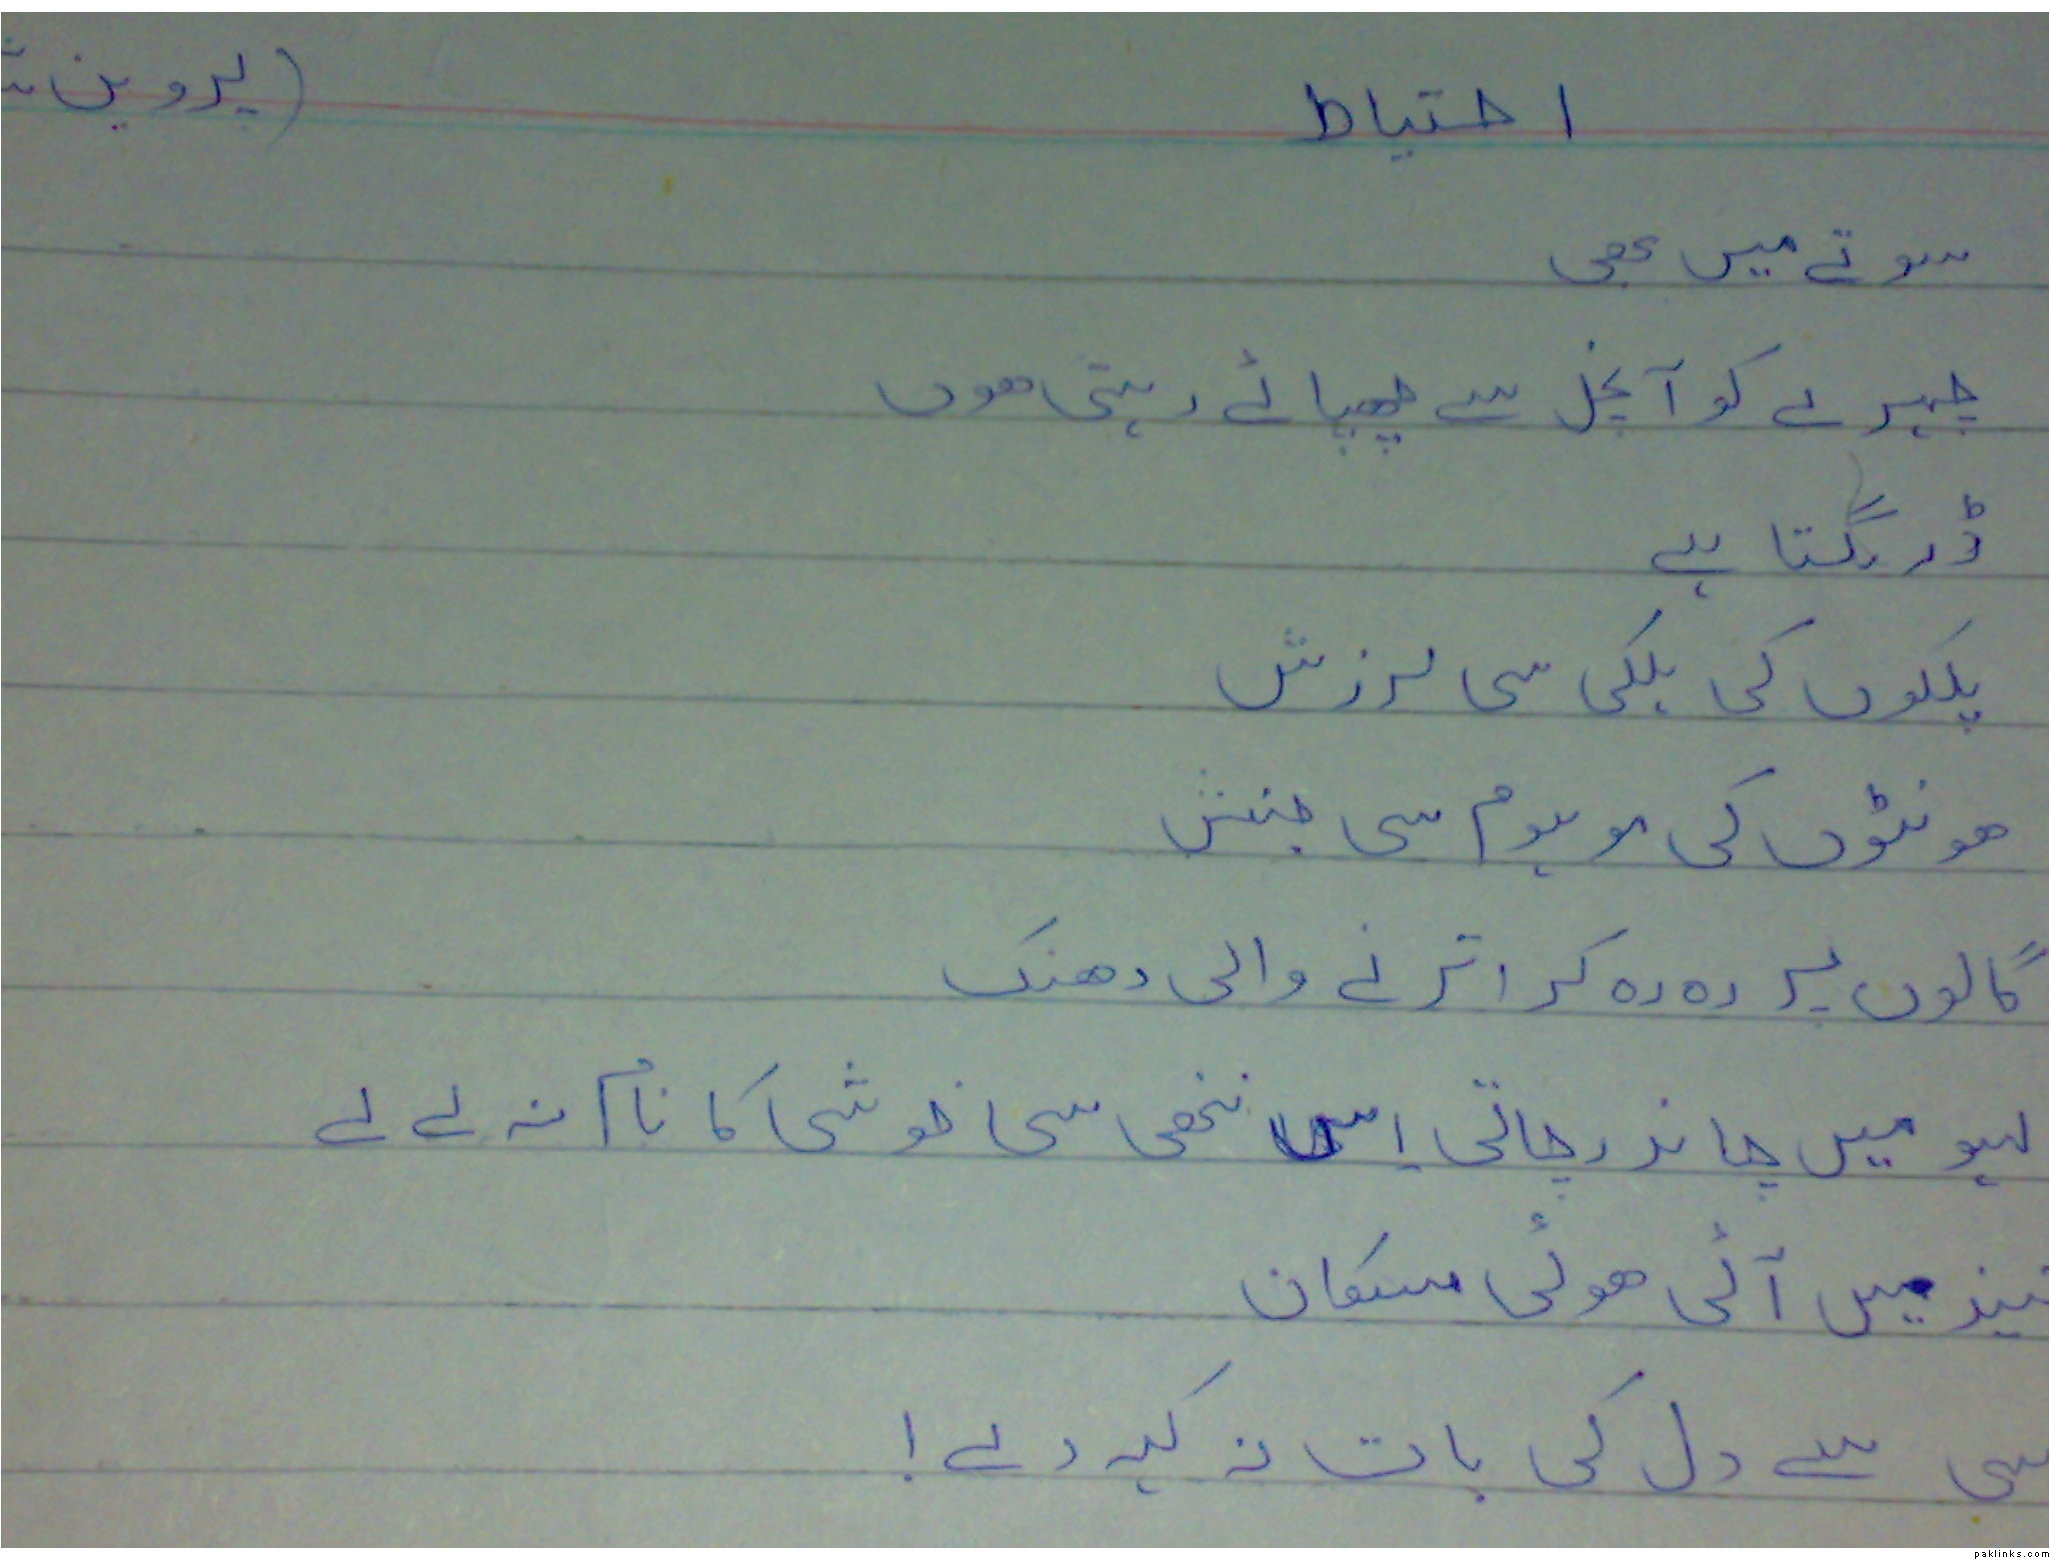 احتیاط (پروین
سوتے میں بھی
چہرے کو آنچل سے چھپائے رہتی ھوں
ڈر لگتا ہے
پلکوں کی ہلکی سی لرزش
ھونٹوں کی موہوم سی جنبش
گالوں پر رہ رہ کر اترنے والی دھنک
لہو میں چاند رچاتی اِس ننھی سی خوشی کا نام نہ لے لے
نیند میں آئی ھوئی مسکان
سی سے دل کی بات نہ کہہ دے!
paklinks.com